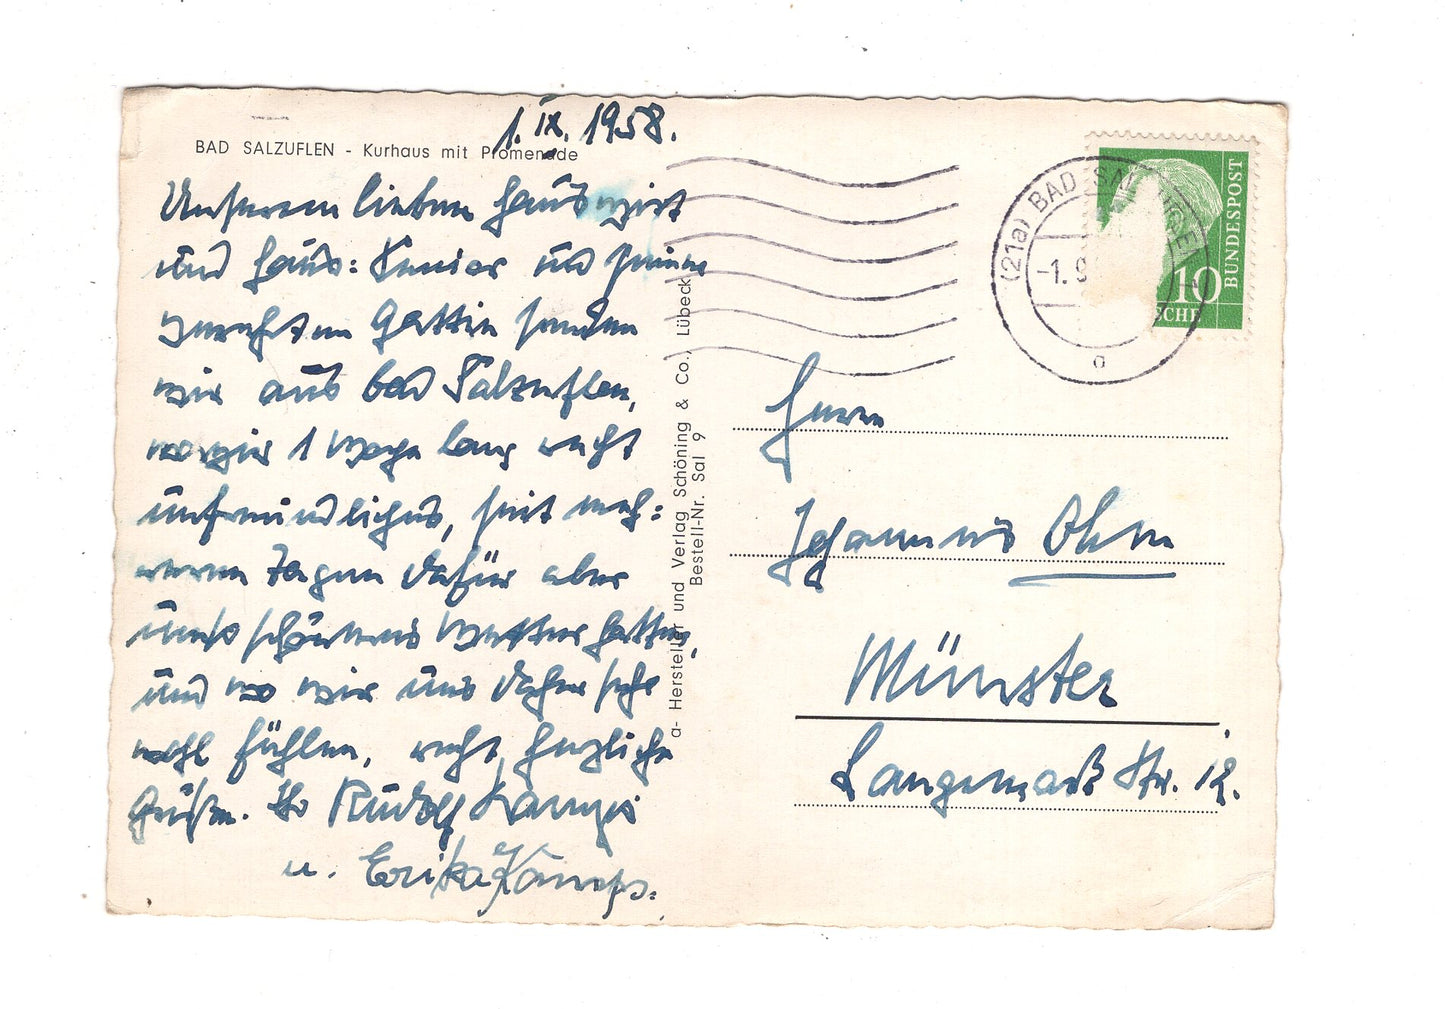 1. IX. 1958.
BAD SALZUFLEN - Kurhaus mit Promenade
Unserem lieben Hauswirt
und Haus: Senior und seiner
verehrten Gattin senden
wir aus bad Salzuflen,
wo wir 1 Woche lang recht
unfreundliches, seit meh:
reren Tagen dafür aber
schöneres Wetter hatten,
und wo wir uns daher sehr
wohl fühlen, recht herzliche
Grüße. Ihr Rudolf Kamps
u. Erika Kamps.
a- Hersteller und Verlag Schöning & Co., Lübeck
Bestell-Nr. Sal 9
(21a) BAD SALZUFLEN 1
-1. 9
a
10
BUNDESPOST
Herrn
Johannes Ohm
Münster
Langemarck Str. 12.